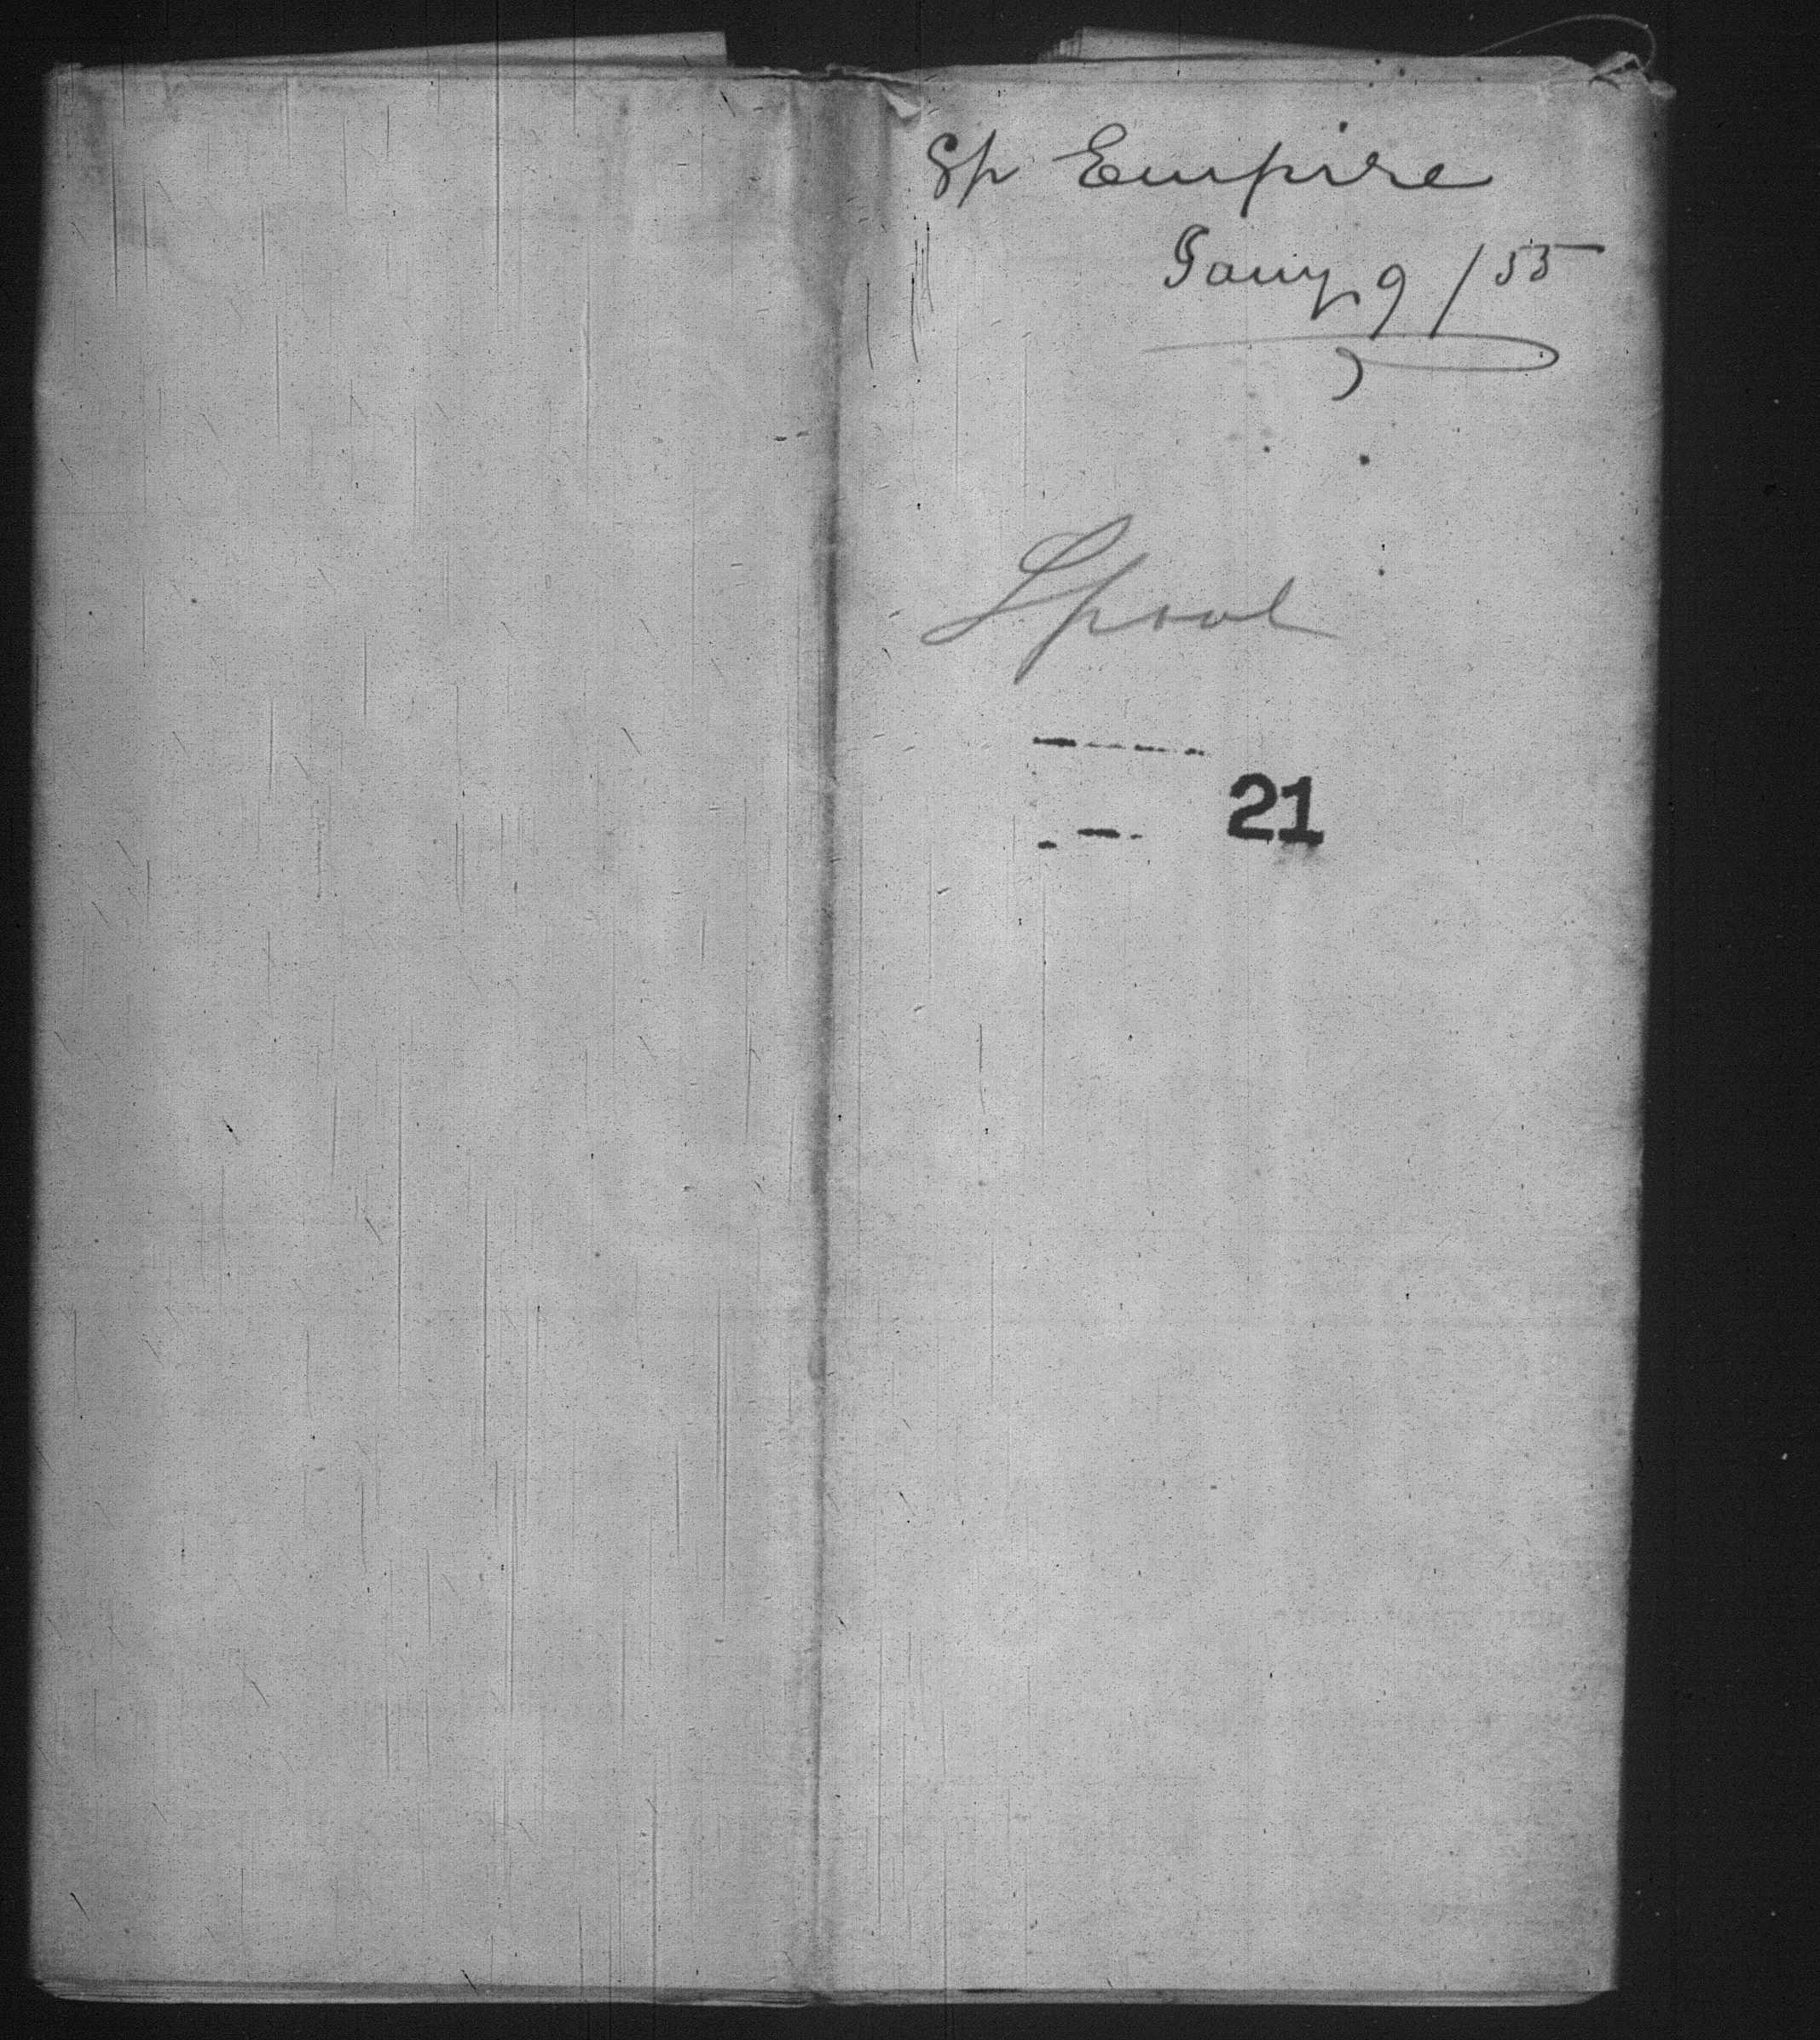 Sp Empire
Jany 9/55
Lpool
21